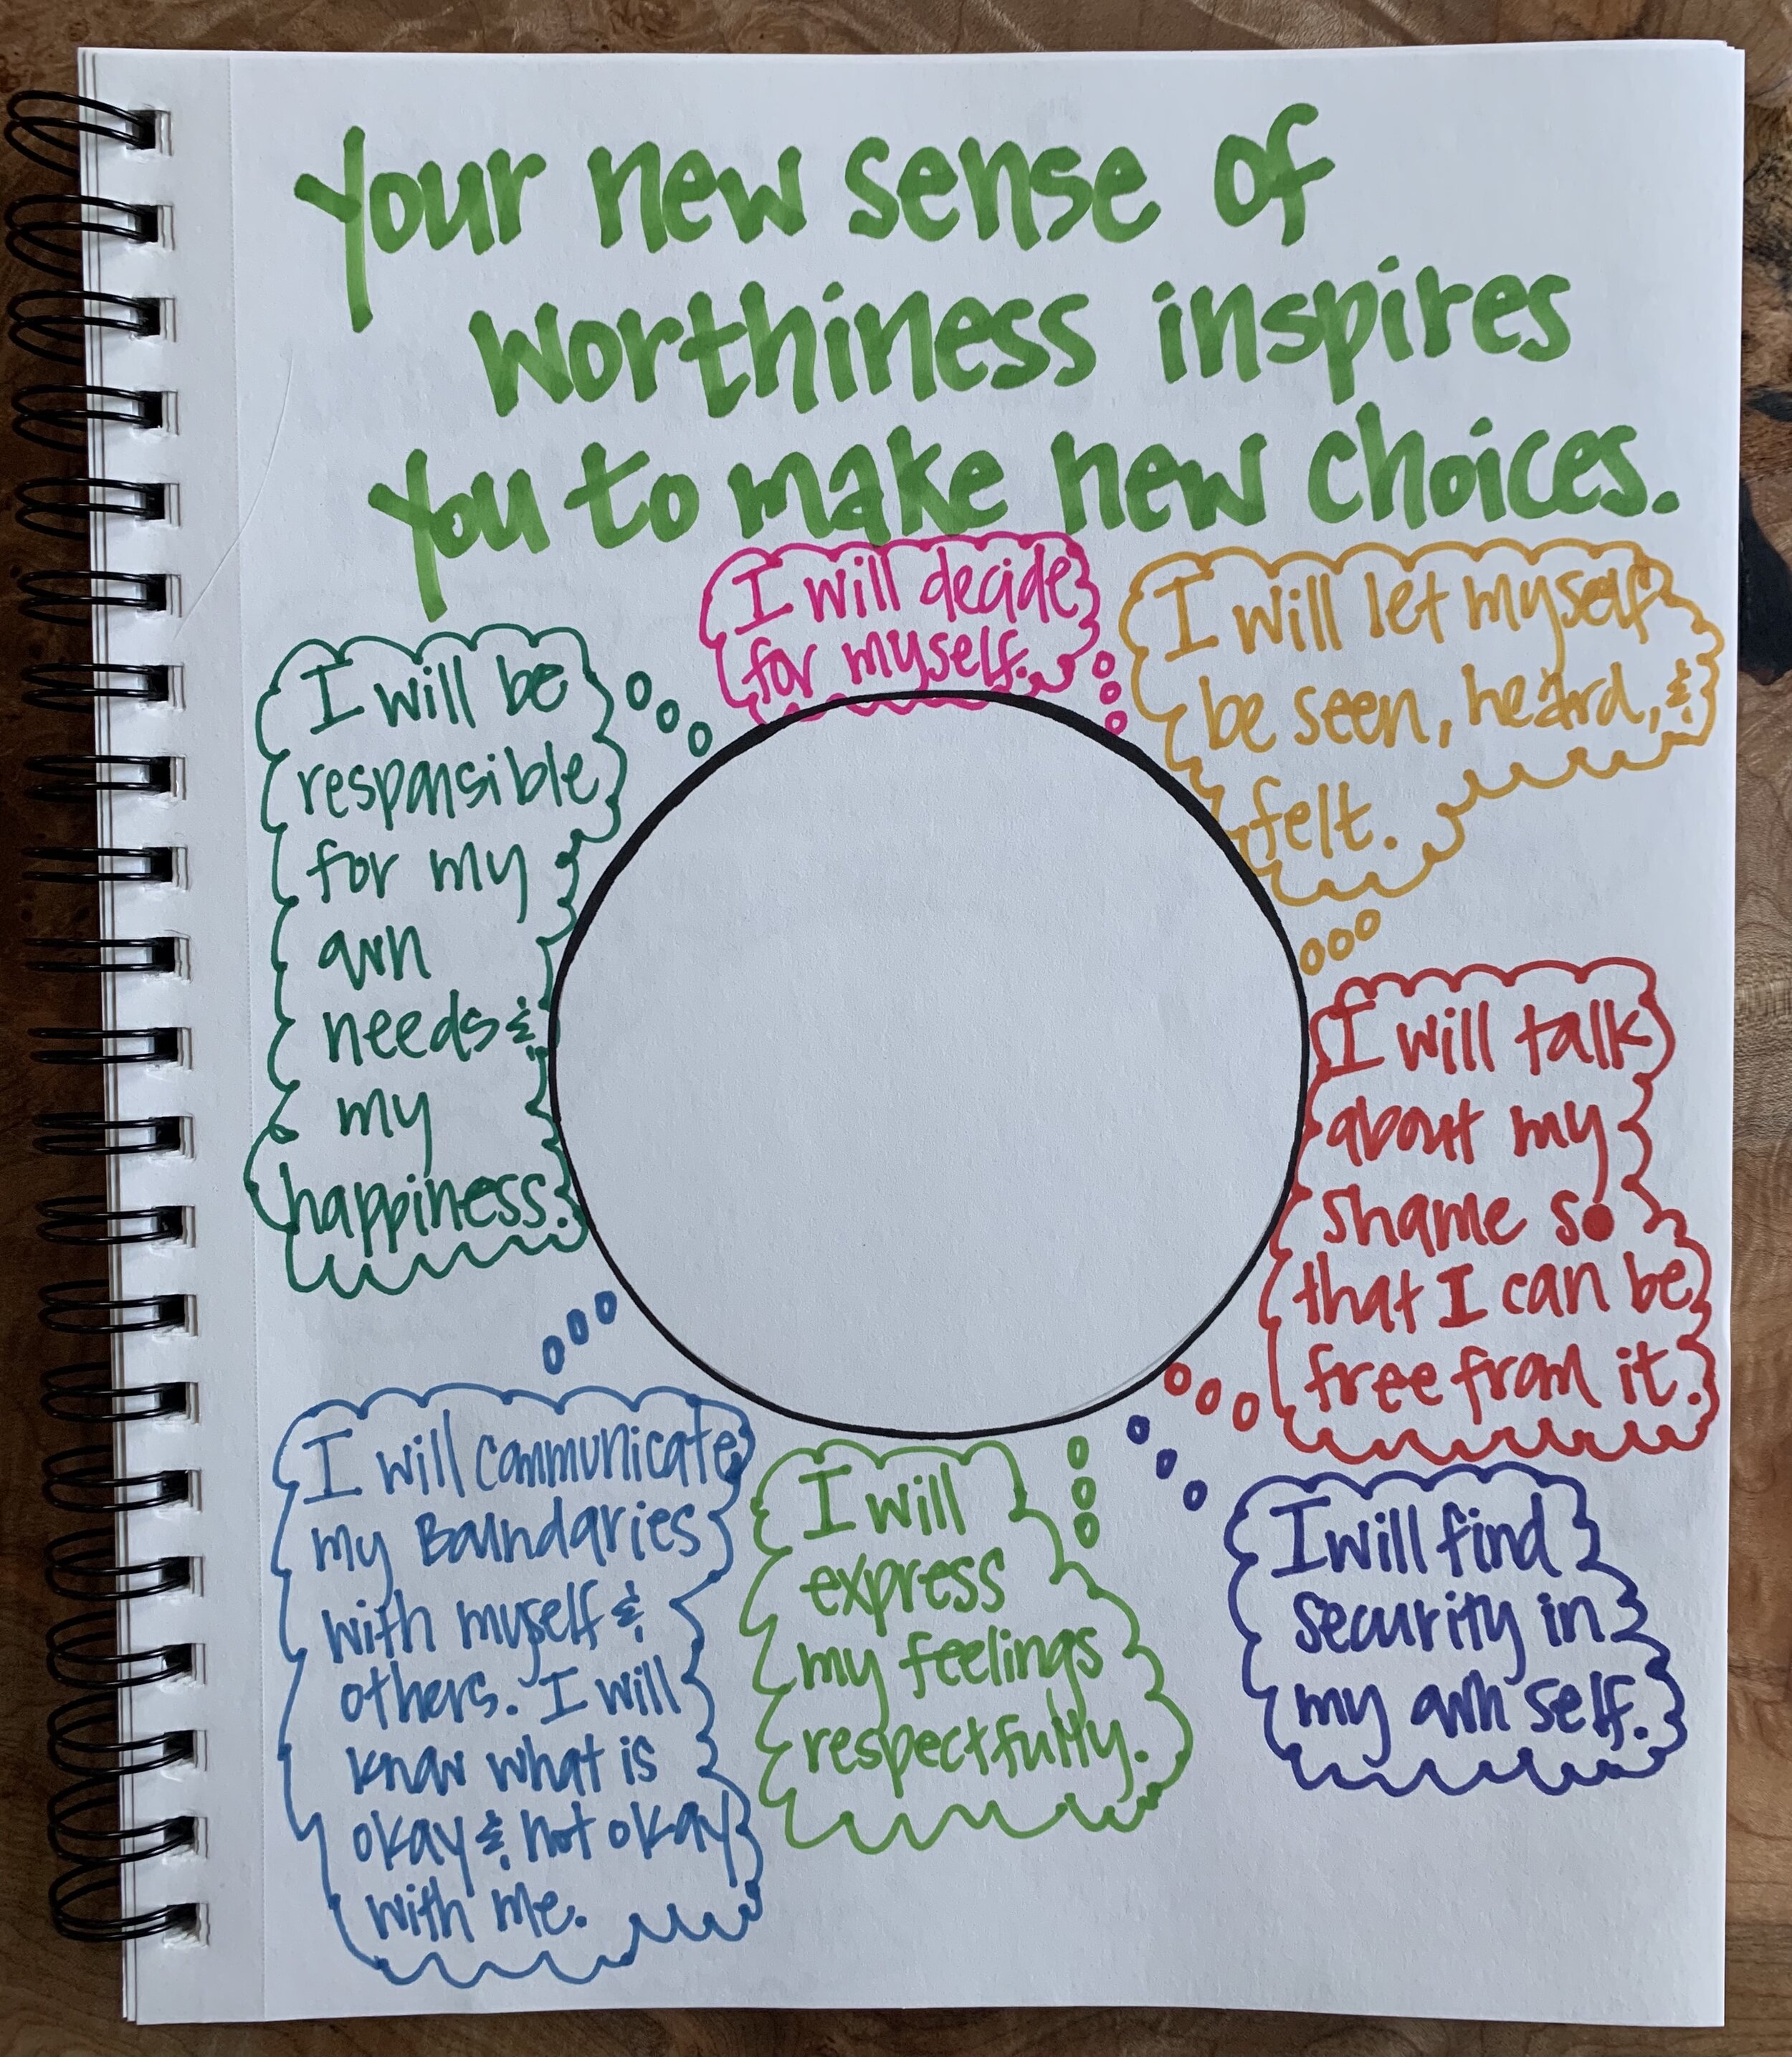 your new sense of
worthiness inspires
you to make new choices.
I will decide
for myself.
I will let myself
be seen, heard, &
felt.
I will be
responsible
for my
own
needs &
my
happiness.
I will talk
about my
shame so
that I can be
free from it.
I will communicate
my Boundaries
with myself &
others. I will
know what is
okay & not okay
with me.
I will
express
my feelings
respectfully.
I will find
security in
my own self.